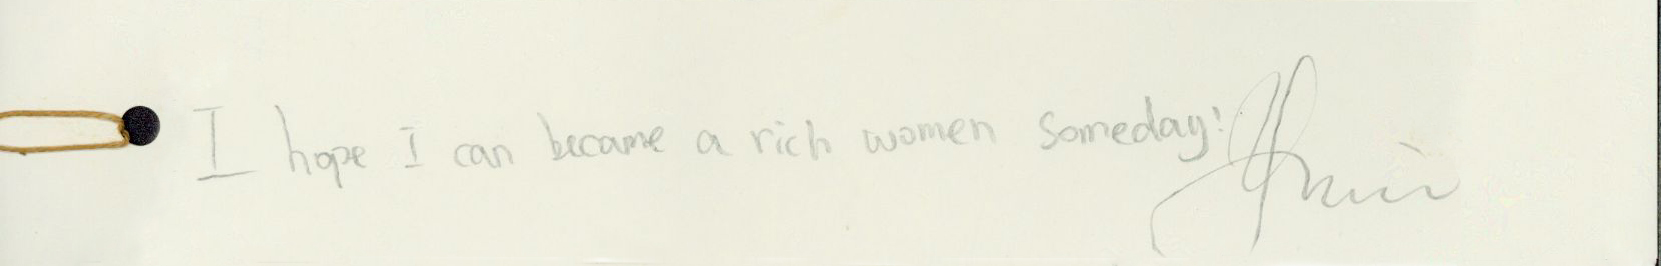 I hope I can became a rich women someday!